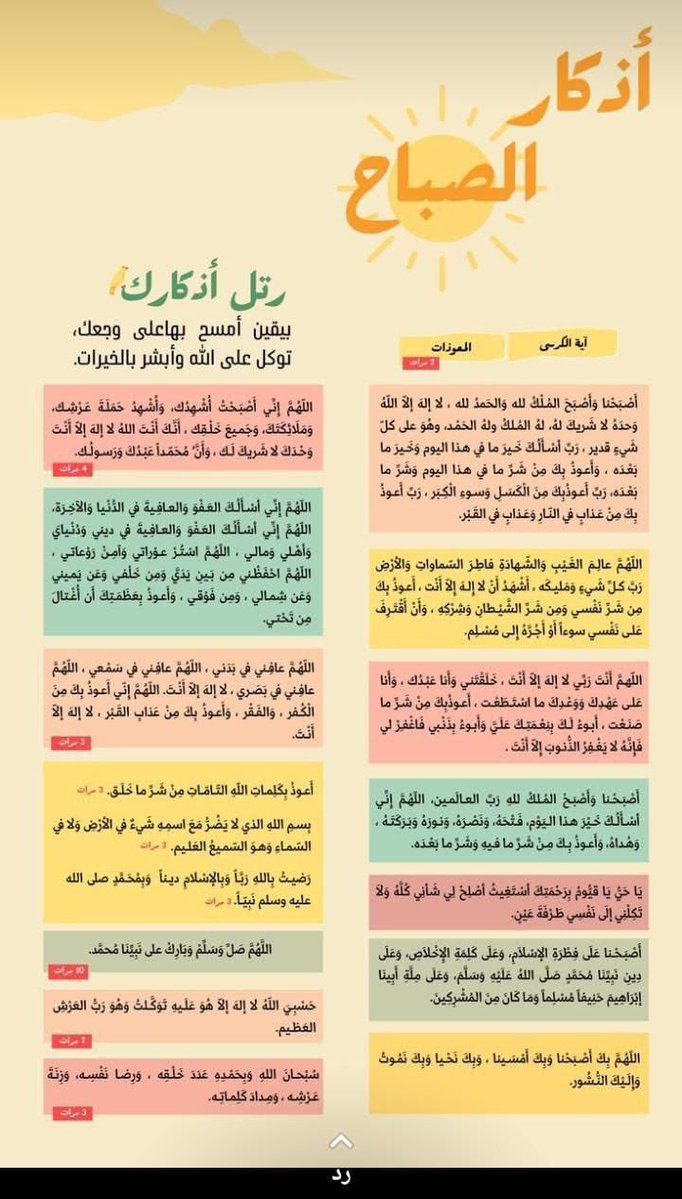 أذكار
الصباح
آية الكرسي
المعوذات
3 مرات
أَصْبَحْنا وَأَصْبَحَ المُلْكُ لله وَالحَمدُ لله ، لا إلهَ إلاّ اللّهُ
وَحدَهُ لا شَريكَ لهُ، لهُ المُلكُ ولهُ الحَمْد، وهُوَ على كلّ
شَيءٍ قدير ، رَبِّ أسْألُكَ خَيرَ ما في هذا اليوم وَخَيرَ ما
بَعْدَه ، وَأَعوذُ بِكَ مِنْ شَرِّ ما في هذا اليوم وَشَرِّ ما
بَعْدَه، رَبِّ أَعوذُبِكَ مِنَ الْكَسَلِ وَسوءِ الْكِبَر ، رَبِّ أَعوذُ
بِكَ مِنْ عَذابٍ في النّارِ وَعَذابٍ في القَبْر.
اللّهُمَّ عالِمَ الغَيْبِ وَالشّهادَةِ فاطِرَ السّماواتِ وَالأرْضِ
رَبَّ كلِّ شَيءٍ وَمَليكَه ، أَشْهَدُ أَنْ لا إِلهَ إِلاّ أَنْت ، أَعوذُ بِكَ
مِن شَرِّ نَفْسي وَمِن شَرِّ الشَّيْطانِ وَشِرْكِهِ ، وَأَنْ أَقْتَرِفَ
عَلى نَفْسي سوءاً أَوْ أَجُرَّهُ إِلى مُسْلِم.
اللّهمَّ أَنْتَ رَبِّي لا إلهَ إلاّ أَنْتَ ، خَلَقْتَني وَأَنا عَبْدُك ، وَأَنا
عَلى عَهْدِكَ وَوَعْدِكَ ما اسْتَطَعْت ، أَعوذُبِكَ مِنْ شَرِّ ما
صَنَعْت ، أَبوءُ لَكَ بِنِعْمَتِكَ عَلَيَّ وَأَبوءُ بِذَنْبي فَاغْفِرْ لي
فَإِنَّهُ لا يَغْفِرُ الذُّنوبَ إِلاّ أَنْتَ .
أَصْبَحْنا وَأَصْبَحْ المُلكُ للهِ رَبِّ العالَمين، اللّهُمَّ إِنِّي
أسْألُكَ خَيْرَ هذا اليَوْم، فَتْحَهُ، وَنَصْرَهُ، وَنورَهُ وَبَرَكَتَهُ ،
وَهُداهُ، وَأَعوذُ بِكَ مِنْ شَرِّ ما فيهِ وَشَرِّ ما بَعْدَه.
يَا حَيُّ يَا قيُّومُ بِرَحْمَتِكَ أسْتَغِيثُ أَصْلِحْ لِي شَأنِي كُلَّهُ وَلاَ
تَكِلْنِي إلَى نَفْسِي طَرْفَةَ عَيْنٍ.
أَصْبَحْنا عَلَى فِطْرَةِ الإسْلاَمِ، وَعَلَى كَلِمَةِ الإِخْلاَصِ، وَعَلَى
دِينِ نَبِيِّنَا مُحَمَّدٍ صَلَّى اللهُ عَلَيْهِ وَسَلَّمَ، وَعَلَى مِلَّةِ أبِينَا
إبْرَاهِيمَ حَنِيفاً مُسْلِماً وَمَا كَانَ مِنَ المُشْرِكِينَ.
اللّهُمَّ بِكَ أَصْبَحْنا وَبِكَ أَمْسَينا ، وَبِكَ نَحْيا وَبِكَ نَمُوتُ
وَإِلَيْكَ النُّشُور.
رتل أذكارك
بيقين أمسح بهاعلى وجعك،
توكل على الله وأبشر بالخيرات.
اللّهُمَّ إِنِّي أَصْبَحْتُ أُشْهِدُك، وَأُشْهِدُ حَمَلَةَ عَرْشِك،
وَمَلَائِكَتَكَ، وَجَميعَ خَلْقِك ، أَنَّكَ أَنْتَ اللهُ لا إلهَ إلاّ أَنْتَ
وَحْدَكَ لا شَريكَ لَك ، وَأَنَّ مُحَمّداً عَبْدُكَ وَرَسولُك.
4 مرات
اللّهُمَّ إِنِّي أسْألُكَ العَفْوَ وَالعافِيةَ في الدُّنْيا وَالآخِرَة،
اللّهُمَّ إِنِّي أسْألُكَ العَفْوَ وَالعافِيةَ في ديني وَدُنْيايَ
وَأَهْلي وَمالي ، اللّهُمَّ اسْتُرْ عوْراتي وَآمِنْ رَوْعاتي ،
اللّهُمَّ احْفَظْني مِن بَينِ يَدَيَّ وَمِن خَلْفي وَعَن يَميني
وَعَن شِمالي ، وَمِن فَوْقي ، وَأَعوذُ بِعَظَمَتِكَ أَن أُغْتالَ
مِن تَحْتي.
اللّهُمَّ عافِني في بَدَني ، اللّهُمَّ عافِني في سَمْعي ، اللّهُمَّ
عافِني في بَصَري ، لا إلهَ إلاّ أَنْتَ. اللّهُمَّ إِنّي أَعوذُ بِكَ مِنَ
الْكُفر ، وَالفَقْر ، وَأَعوذُ بِكَ مِنْ عَذابِ القَبْر ، لا إلهَ إلاّ
أَنْتَ.
3 مرات
أَعوذُ بِكَلِماتِ اللّهِ التّامّاتِ مِنْ شَرِّ ما خَلَق. 3 مرات
بِسمِ اللهِ الذي لا يَضُرُّ مَعَ اسمِهِ شَيءٌ في الأرْضِ وَلا في
السّماءِ وَهوَ السّميعُ العَليم. 3 مرات
رَضيتُ بِاللهِ رَبَّاً وَبِالإسْلامِ ديناً وَبِمُحَمَّدٍ صلى الله
عليه وسلم نَبِيّاً. 3 مرات
اللَّهُمَّ صَلِّ وَسَلِّمْ وَبَارِكْ على نَبِيِّنَا مُحمَّد.
10 مرات
حَسْبِيَ اللّهُ لا إلهَ إلاّ هُوَ عَلَيهِ تَوَكَّلتُ وَهُوَ رَبُّ العَرْشِ
العَظيم.
7 مرات
سُبْحانَ اللهِ وَبِحَمْدِهِ عَدَدَ خَلْقِه ، وَرِضا نَفْسِه، وَزِنَةَ
عَرْشِه ، وَمِدادَ كَلِماتِه.
3 مرات
رد